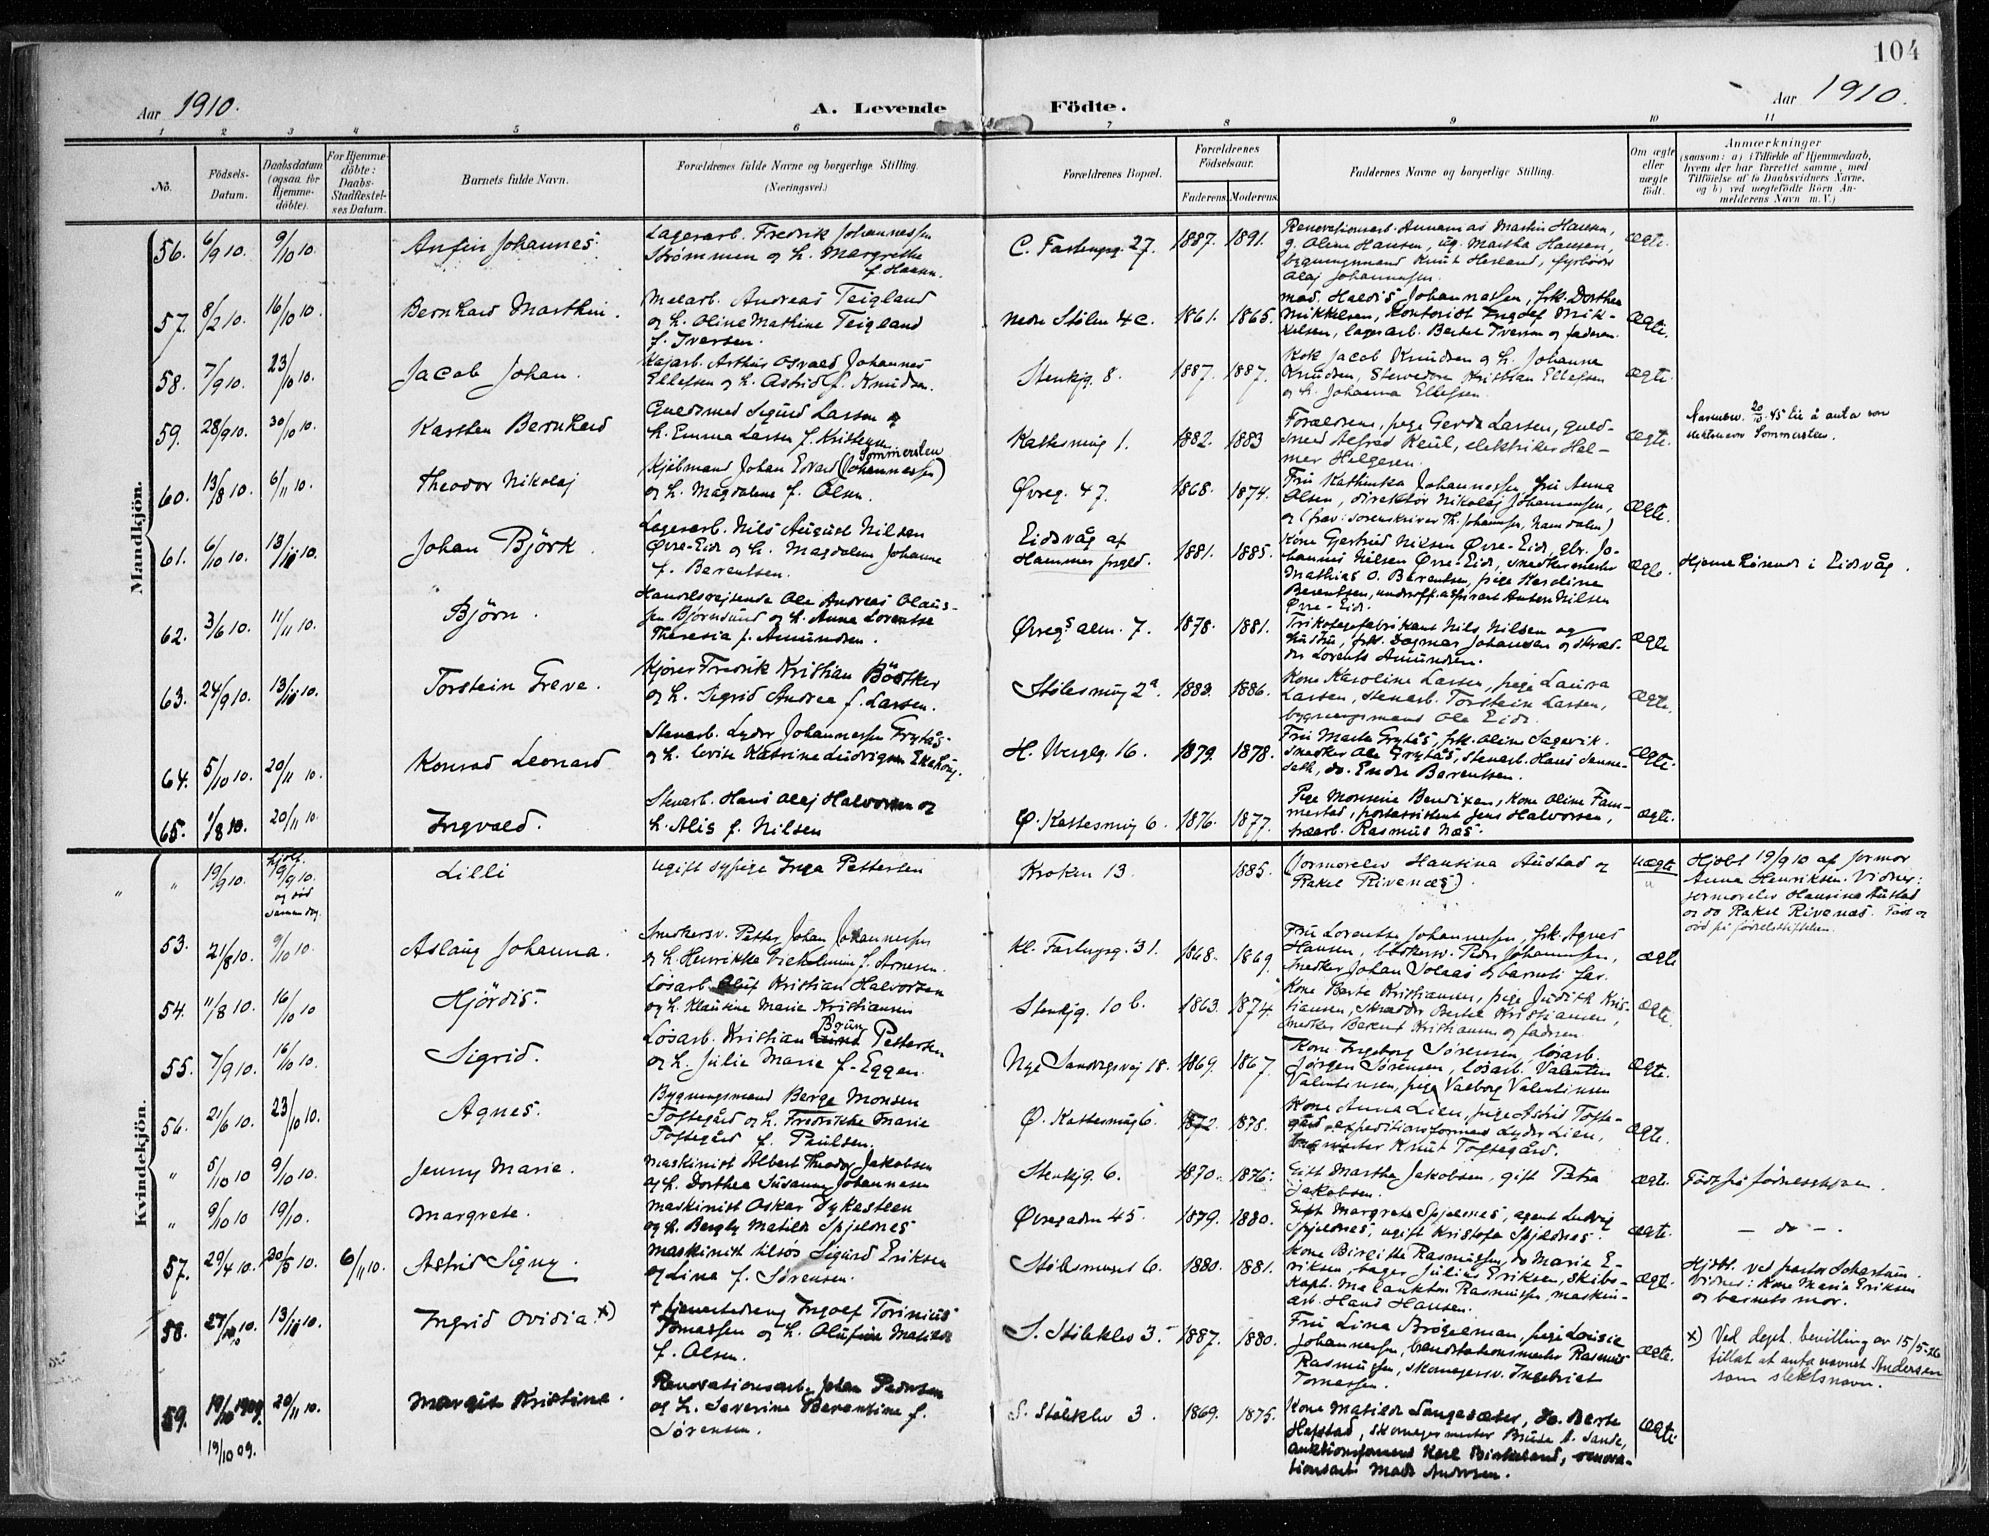 104
Aar 1910. A. Levende Födte. Aar 1910.
1 2 3 4 5 6 7 8 9 10 11
No. Födsels-Datum. Daabsdatum (ogsaa for Hjemme-döbte). For Hjemme-döbte: Daabs-Stadfæstel-ses Datum. Barnets fulde Navn. Forældrenes fulde Navne og borgerlige Stilling. (Næringsvei.) Forældrenes Bopæl. Forældrenes Födselsaar. Faderens. Moderens. Faddernes Navne og borgerlige Stilling. Om ægte eller uægte födt. Anmærkninger (saasom: a) i Tilfælde af Hjemmedaab, hvem der har forrettet samme, med Tilföielse af to Daabsvidners Navne, og b) ved uægtefödte Börn An-melderens Navn m. V.)
Mandkjön.
56. 6/9 10. 9/10 10 Anfin Johannes.
Lagerarb. Fredrik Johannessen
Strømmen og h. Margrethe
f. Hansen.
1887. 1891. Ægte.
57. 8/2 10. 16/10 10 Bernhard Marthin.
Andreas Teigland
og h. Oline Mathine Teigland
f. Iversen.
Nedre Stølen 4c. 1861. 1865. Ægte.
58. 7/9 10. 23/10 10. Jacob Johan.
Kajarb. Arthur Osvald Johannes
Ellefsen og h. Astrid f. Knudsen.
Stenkjg. 8. 1887. 1887.
Kok Jacob Knudsen og h. Johanna
Knudsen, Kristian Ellefsen
og h. Johanna Ellefsen.
Ægte.
59. 28/9 10. 30/10 10. Karsten Bernhard
Guldsmed Sigurd Larsen og
h. Emma Larsen f.
Kattesmug 1. 1882. 1883
Forældrene, pige Gerda Larsen, guld-
smed Alfred Keul, elektriker Hel-
mer Helgesen.
Ægte.
60. 13/8 10. 6/11 10. Theodor Nikolaj
Sommersten
Kjøbmand Johan Edvard (Johannessen)
og h. Magdalene f. Olsen.
Øvreg. 47. 1868. 1874.
Fru Kathinka Johannessen, fru Anna
Olsen, direktør Nikolaj Johannessen,
Ægte.
61. 6/10 10. 13/11 10. Johan Björk.
Lagerarb. Nils August Nilsen
Øvre-Eide og h. Magdalene Johanne
f. Berentsen.
Eidsvåg af
Hammer prgld. 1881. 1885.
Kone Gjertrud Nilsen Øvre-Eide, gbr. Jo-
hannes Nilsen Øvre-Eide, snedkermester
Mathias O. Berentsen, pige Hardine
Berentsen, underoff.aspirant Anton Nilsen
Øvre-Eide.
Ægte. Hjemmehørende i Eidsvåg.
62. 3/6 10. 11/11 10. Björn.
Handelsrejsende Ole Andreas Olaus-
sen Bjørnsund og h. Anna Lorentse
Theresia f. Amundsen.
Øvregs alm. 7. 1878. 1881.
Trikotagefabrikant Nils Nilsen og
hustru, frk. Dagmar Johansen og skræd-
der Lorents Amundsen.
Ægte
63. 24/9 10. 13/11 10. Torstein Greve.
Kjører Fredrik Kristian Bödtker
og h. Sigrid Andrea f. Larsen.
Stølesmug 2a. 1883. 1886.
Kone Karoline Larsen, pige Laura
Larsen, stenarb. Torstein Larsen,
bygningsmand Ole Eide.
Ægte.
64. 5/10 10. 20/11 10. Konrad Leonard
Stenarb. Lyder Johannessen Grytås
og h. Lovise Katrine Ludvigsen Ekehoug.
H. Wesselg. 16. 1879. 1878.
Fru Marta Grytås, frk. Oline Sagevik.
Snedker Ole Grytås, stenarb. Hans Sanne-
seth, do. Endre Berentsen.
Ægte.
65. 1/8 10. 20/11 10. Ingvald.
Stenarb. Hans Olaj Halvorsen og
h. Alis f. Nilsen
Ø. Kattesmug 6. 1876. 1877.
Pige Monsine Bendixen, kone Oline Fam-
mestad, postassistent Jens Halvorsen,
træarb. Rasmus Næs.
Ægte.
Kvindekjön.
" " 19/9 10. hjdbt. 19/9 10. og død samme dag. Lilli
ugift sypige Inga Pettersen
Kroken 13. 1885.
(Jormorelev Hansina Austad og
Rakel Rivenæs).
uægte
Hjdbt 19/9 10 af jormor
Anna Henriksen. Vidner:
jormorelev Hansina Austad
og do Rakel Rivenæs. Født og
død på fødselsstiftelsen.
53. 21/8 10. 9/10 10. Aslaug Johanna.
Snedkersv. Petter Johan Johannessen
og h. Henrikke Vilhelmine f. Arnesen.
1868. 1869.
Fru Lorentse Johannessen, frk. Agnes
Hansen, Peder Johannessen,
snedker Johan Solaas og barnets far.
ægte
54. 11/8 10. 16/10 10 Hjördis.
Løsarb. Oluf Kristian Halvorsen
og h. Klausine Marie Kristiansen
Stenkjg. 10 b. 1863. 1874.
Kone Berte Kristiansen, pige Judith Kris-
tiansen, skrædder Bertel Kristiansen,
snedker Berent Kristiansen og faderen.
Ægte.
55. 7/9 10. 16/10 10. Sigrid.
Løsarb. Kristian Brun Pettersen
og h. Julie Marie f. Eggen.
Nye Sandvigsvej 18. 1869. 1867.
Kone Ingeborg Sørensen, løsarb.
Jørgen Sørensen, løsarb. Valentin
Valentinsen, pige Valborg Valentinsen
Ægte.
56. 21/6 10. 23/10 10. Agnes.
Bygningsmand Berge Monsen
Toftegård og h. Fredrikke Marie
Toftegård f. Paulsen.
Ø. Kattesmug 6. 1872. 1878.
Kone Anna Lien, pige Astrid Tofte-
gård, expeditionsformand Lyder Lien,
Knut Toftegård.
Ægte.
" 5/10 10 9/10 10. Jenny Marie.
Maskinist Albert Theodor Jakobsen
og h. Dorthea Susanne Johannesen
Stenkjg. 6. 1870. 1876.
Gift Martha Jakobsen, gift Petra
Jakobsen.
ægte. Født på fødselsstiftelsen.
" 9/10 10 19/10. Margrete.
Maskinist Oskar Dykesteen
og h. Bergly Matilde Spjeldnes
Øvregaden 45. 1879. 1880.
Gift Margrete Spjeldnes, agent Ludvig
Spjeldnes, ugift Kristofa Spjeldnes.
ægte. — do —.
57. 29/4 10. 20/5 10. 6/11 10. Astrid Signy.
Maskinist tilsøs Sigurd Eriksen
og Lina f. Sørensen.
Stølesmuget 6. 1880. 1881.
Kone Birgitte Rasmussen, do Marie E-
riksen, bager Julius Eriksen, skibs-
kapt. Malankton Rasmussen, maskin-
arb. Hans Hansen.
ægte.
Hjdbt. ved pastor
Vidner: Kone Marie Eriksen
og barnets mor.
58. 27/10 10. 13/11 10. Ingrid Ovidia x)
Ingolf Torinius
Tomassen og h. Olufine Matilde
f. Olsen.
S. Støleklev 3. 1887. 1880.
Fru Lina Brøgelman, pige Lovise
Johannessen, brandstationsmester Rasmus
Rasmussen, skomagersv. Ingebrigt
Tomassen.
ægte.
x) Ved dept. bevilling av 15/5-26
tillat at anta navnet Andersen
som slektsnavn.
59. 19/10 1909. 20/11 10. Margit Kristine.
19/10 09.
Renovationsarb. Johan Pedersen
og h. Severine Berentine f.
Sørensen.
S. Støleklev 3. 1869. 1875.
Kone Matilde Langesæter, do. Berte
Hefstad, skomagermester Brude S. Sande,
auktionsformand Karl Birkeland, renova-
tionsarb. Mads Andersen.
Ægte.